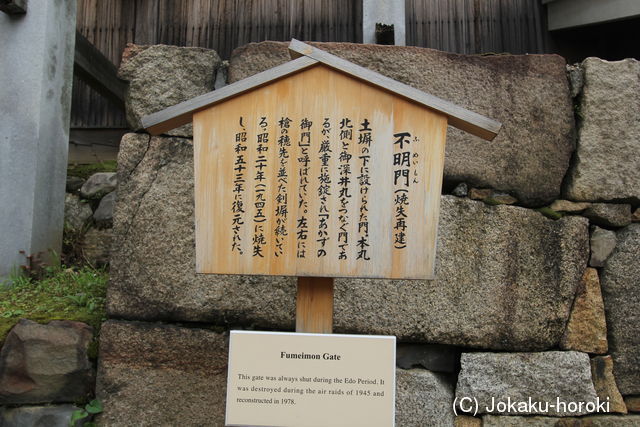 ふめいもん
不明門(焼失再建)
土塀の下に設けられた門。本丸
北側と御深井丸をつなぐ門であ
るが、厳重に施錠され「あかずの
御門」と呼ばれていた。左右には
槍の穂先を並べた剣塀が続いてい
る。昭和二十年(一九四五)に焼失
し、昭和五十三年に復元された。
Fumeimon Gate
This gate was always shut during the Edo Period. It
was destroyed during the air raids of 1945 and
reconstructed in 1978.
(C) Jokaku-horoki